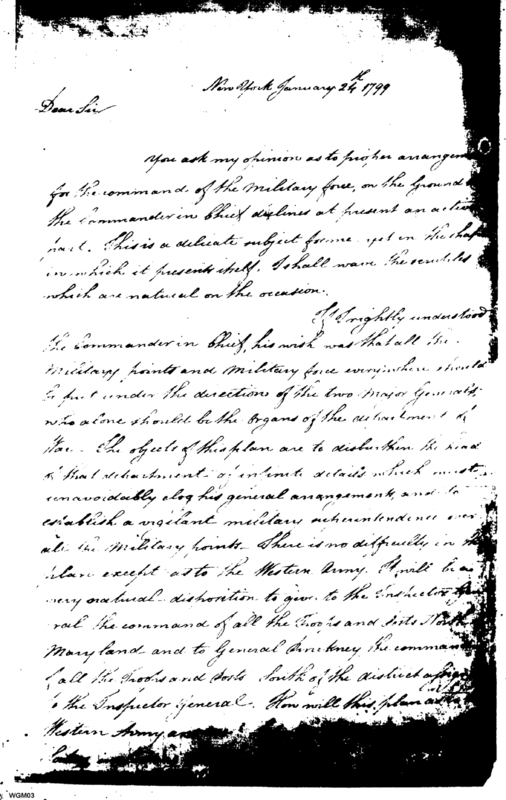 New York January 24th 1799
Dear Sir
You ask my opinion as to proper arrangem
for the command of the Military force, on the Ground
the Commander in Chief declines at present an active
part. This is a delicate subject for me yet in the shap
in which it presents itself. I shall wave the scruples
which are natural on the occasion.
If I rightly understood
the Commander in Chief, his wish was that all the
Military points and Military force everywhere should
be put under the directions of the two Major Generals,
who alone should be the Organs of the department of
War. The objects of this plan are to disburthen the head
of that department of infinite details which must
unavoidably clog his general arrangements and to
establish a vigilant military superintendence over
all the Military points. There is no difficulty in the
plan except as to the Western Army. It will be a
very natural disposition to give to the Inspector Gene
ral the command of all the Troops and Posts North
Maryland and to General Pinckney the comman
of all the Troops and Posts South of the district assign
to the Inspector General. How will this plan as to
Western Army